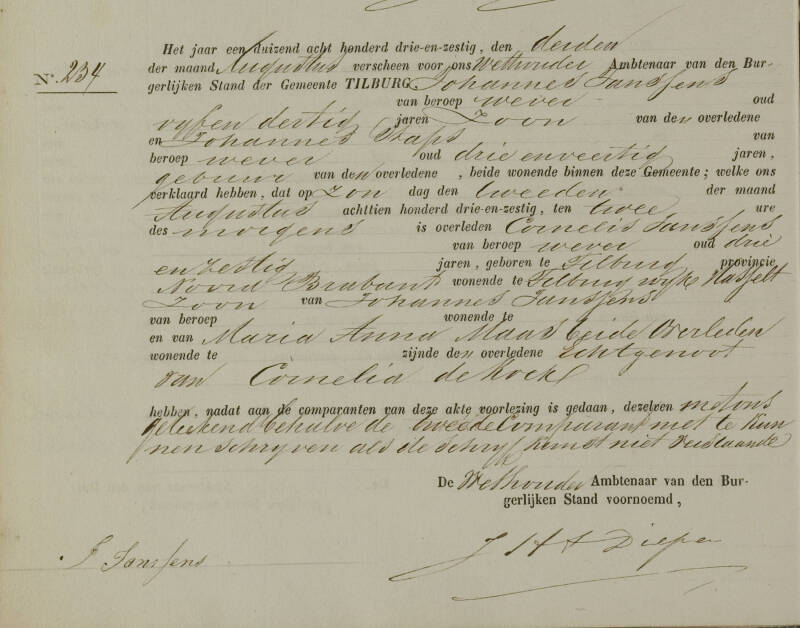 Het jaar een duizend acht honderd drie-en-zestig, den derden
N.º 234
der maand Augustus verscheen voor ons Wethouder Ambtenaar van den Bur-
gerlijken Stand der Gemeente TILBURG, Johannes Janssens
van beroep wever oud
vyf en dertig jaren Zoon van den overledene
en Johannes Staps van
beroep wever oud drie en veertig jaren,
gebuur van den overledene, beide wonende binnen deze Gemeente; welke ons
verklaard hebben, dat op Zon dag den tweeden der maand
Augustus achttien honderd drie-en-zestig, ten twee ure
des morgens is overleden Cornelis Janssens
van beroep wever oud drie
en zestig jaren, geboren te Tilburg provincie
Noord Brabant wonende te Tilburg wyk Hasselt
Zoon van Johannes Janssens
van beroep wonende te
en van Maria Anna Maas beide Overleden
wonende te zijnde den overledene Echtgenoot
van Cornelia de Kock
hebben, nadat aan de comparanten van deze akte voorlezing is gedaan, dezelven met ons
geteekend behalve de tweede Comparant met te kun
nen schryven als de schryfkunst niet verstaande
De Wethouder Ambtenaar van den Bur-
gerlijken Stand voornoemd,
J Janssens